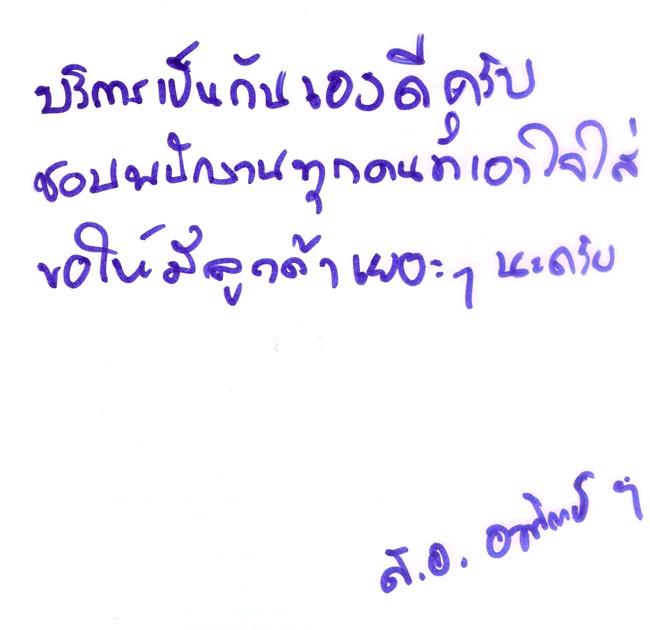 บริการเป็นกันเองดีครับ
ชอบพนักงานทุกคนที่เอาใจใส่
ขอให้มีลูกค้าเยอะๆ นะครับ
ส.อ.